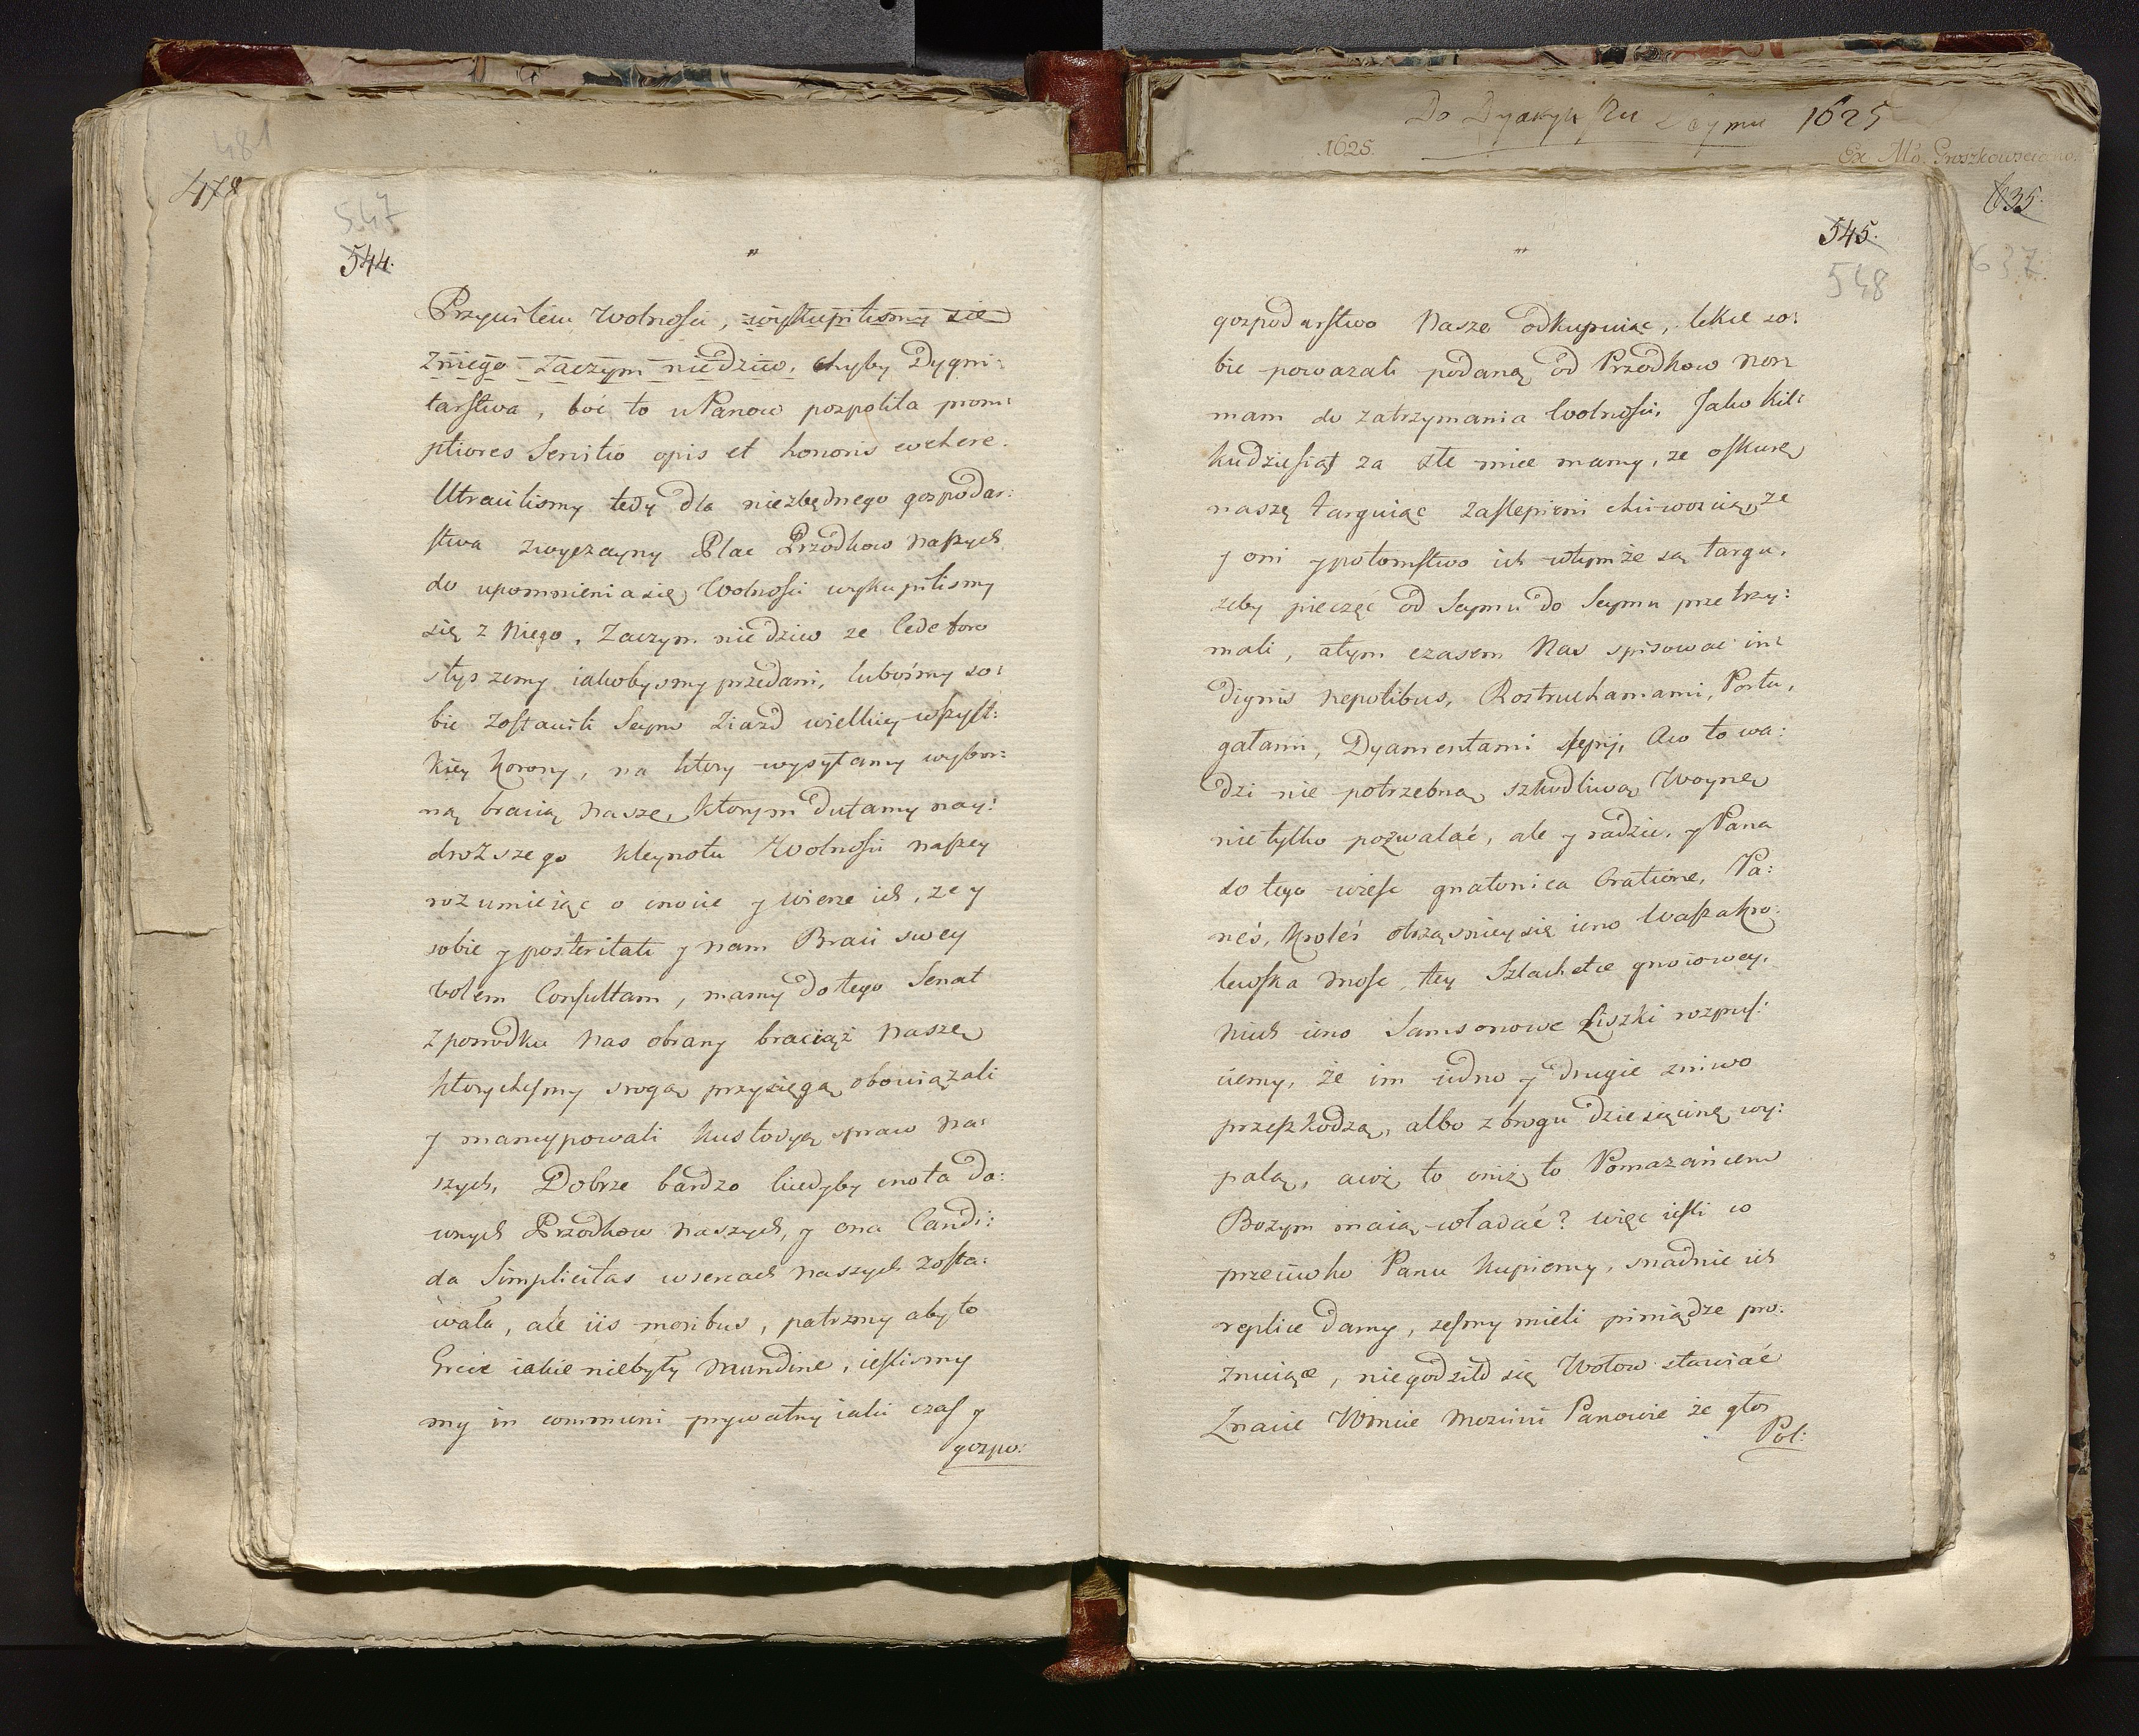 481
478
547
544.
Przywileiu Wolnosci, wyskupilismy się
zniego zaczym niedziw, chyby Dygni:
tarstwa, boć to u Panow pospolita prom:
ptiores Servitio opis et honoris evehere.
Utracilismy tedy dla niezbędnego gospodar:
stwa zwyczayny Plac Przodkow naszych
do upomnienia się Wolnosci wykupilismy
się z niego, Zaczym niedziw ze
słyszemy iakobysmy przedani, lubośmy so:
bie zostawili Seym Ziazd wielkiey wszyst:
kiey Korony, na ktory wysyłamy wybor:
ną bracią nasze, ktorym dufamy nay:
droższego kleynotu Wolnosci naszey
rozumieiąc o cnocie y wierze ich, ze y
sobie y posteritati y nam Braci swey
volem Consultam, mamy do tego Senat
z posrodku nas obrany braciąż naszę
ktorychesmy srogą przysięgą obowiązali
y mancypowali kustodyą spraw na:
szych, Dobrze bardzo kiedyby cnota da:
wnych Przodkow naszych, y ona Candi:
da Simplicitas w sercach naszych zosta:
wała, ale iis moribus, patrzmy aby to
Grecie iakie niebyły Nundine, iestismy
my in communi prywatny iaki czas y
gospo:
Do Dyaryuszu Seymu 1625
1625.
Ex Mo. Groszkowsciano.
635.
637.
545.
548
gospodarstwo Nasze odkupuiąc, lekce so:
bie powazali podaną od Przodkow nor:
mam do zatrzymania Wolnosci, Jako kil:
kudziesiąt za złe miec mamy, ze o skurę
naszę targuiąc zaslepieni chciwoscią, ze
y oni y potomstwo ich wtymże są targu,
zeby pieczęć od Seymu do Seymu przetrzy:
mali, a tym czasem Nas spisowac in:
dignis nepotibus, Roztruchanami, Portu,
gałami, Dyamentami slepij, Aw to wa:
dzi nie potrzebną szkodliwą Woynę
nie tylko pozwalać, ale y radzic, y Pana
do tego wiesc gnatonica Oratione, Pa:
neś, Kroleś otrząsniey się ieno Waszakro:
lewska Mosc, tey Szlachetce gnoiowey,
niech ieno Samsonowe Liszki rozpus:
ciemy, że im iedno y drugie zniwo
przeszkodzą, albo z brogu dziesięcinę wy:
palą, awż to oniż to Pomazańcem
Bozym maią władać? więc iesli co
przeciwko Panu kupiemy, snadnie ich
replice damy, zesmy mieli pieniądze pro:
znuiące, nie godziło się Wołow stawiać
Znacie Wmcie Mosciwi Panowie że głos
Pol: